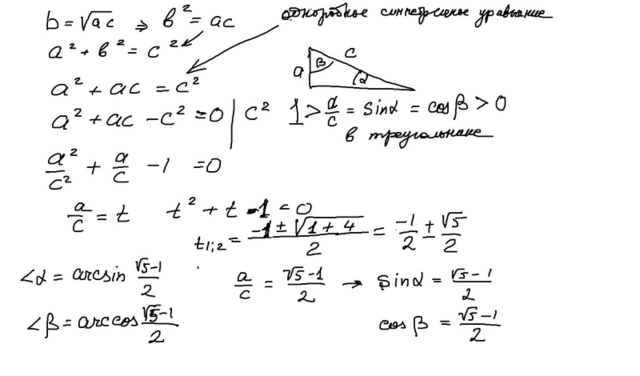 b = √ac ⇒ b² = ac
однородное симметричное уравнение
a² + b² = c²
a² + ac = c²
a c β α
a² + ac - c² = 0 | c²
1 > a/c = sinα = cosβ > 0
в треугольнике
a²/c² + a/c - 1 = 0
a/c = t t² + t - 1 = 0
t₁;₂ = (-1 ± √1+4)/2 = -1/2 ± √5/2
∠α = arcsin (√5-1)/2 a/c = (√5-1)/2 → sinα = (√5-1)/2
∠β = arccos (√5-1)/2 cosβ = (√5-1)/2